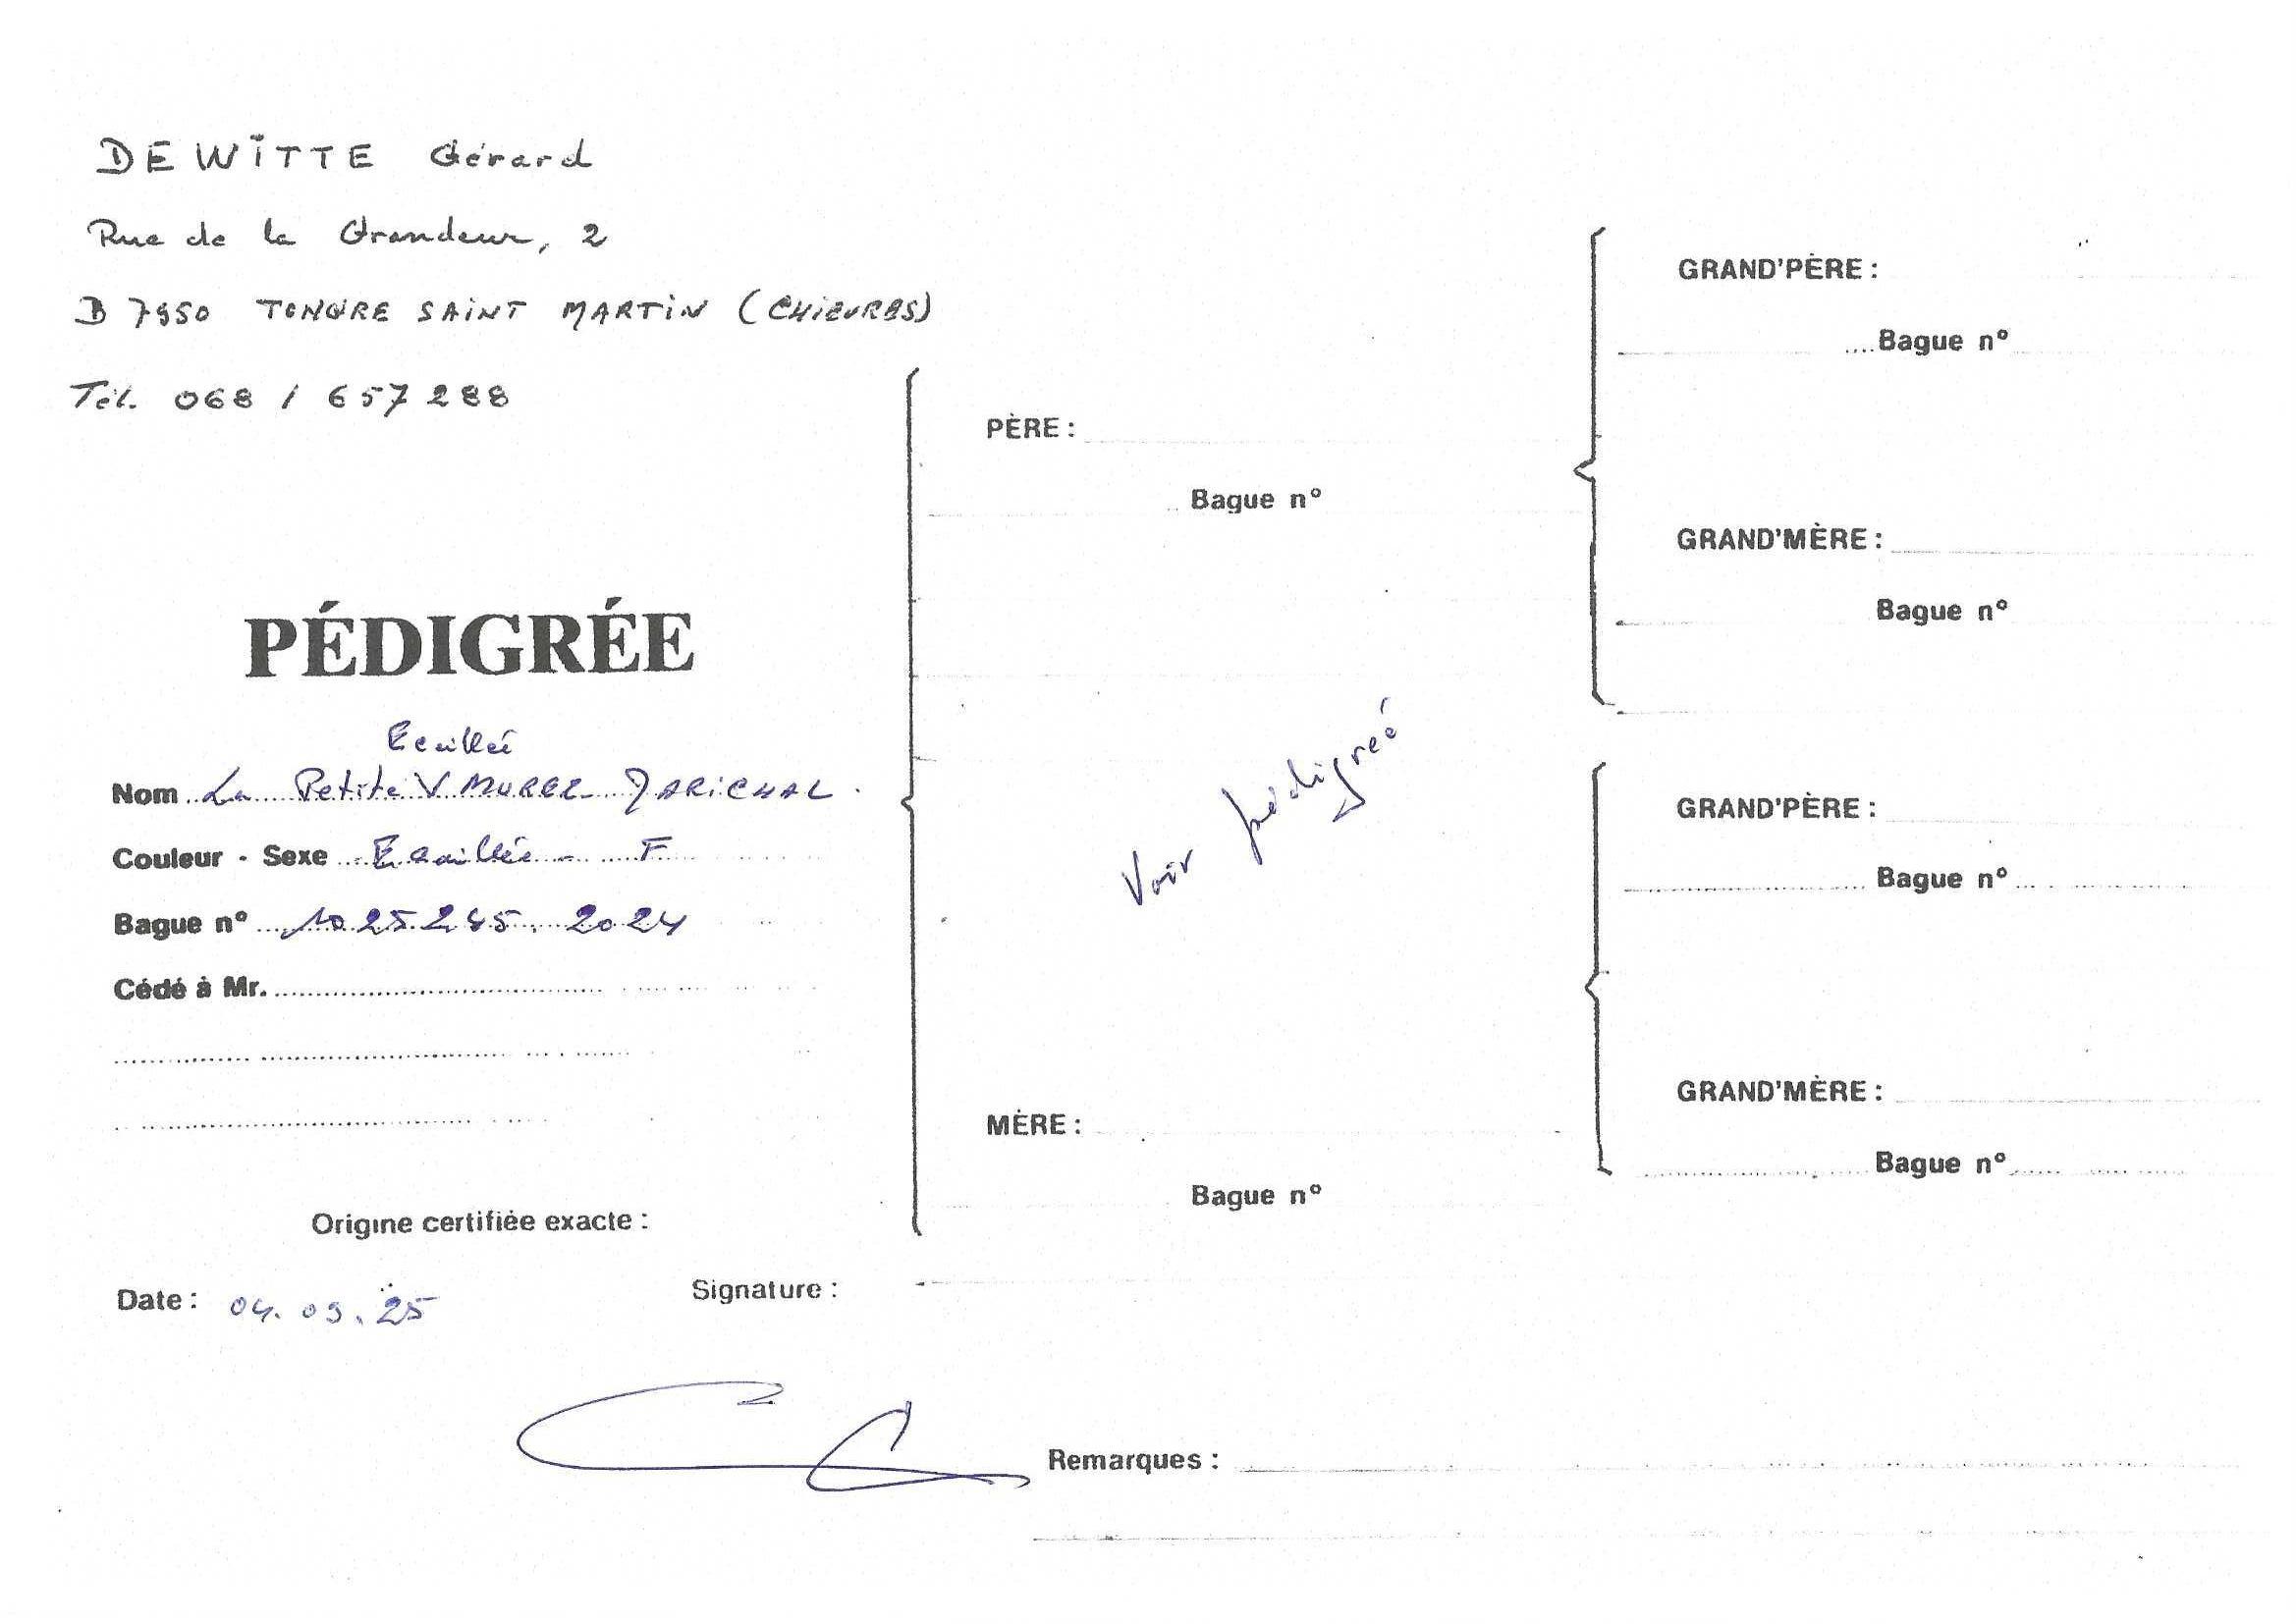 DEWITTE Gérard
Rue de la Grandeur, 2
B 7950 TONGRE SAINT MARTIN (CHIEVRES)
Tél. 068 / 657288
PÉDIGRÉE
Ecaillée
Nom La Petite V MUREZ MARICHAL.
Couleur - Sexe Ecaillée - F
Bague n° 1025245. 2024
Cédé à Mr.
Origine certifiée exacte :
Date : 04.09.25
Signature :
PÈRE :
Bague n°
Voir pédigreé
MÈRE :
Bague n°
GRAND'PÈRE :
Bague n°
GRAND'MÈRE :
Bague n°
GRAND'PÈRE :
Bague n°
GRAND'MÈRE :
Bague n°
Remarques :